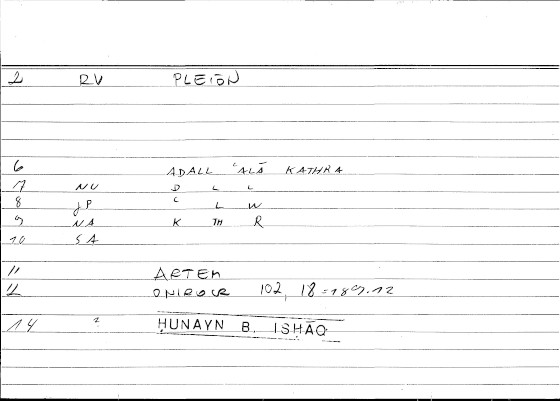 2 RV PLEIŌN
6 ADALL ʿALĀ KATHRA
7 NU D L L
8 JP ʿ L W
9 NA K TH R
10 SA
11 ARTEM
12 ONIROCR 102, 18 = 189.12
14 2 ḤUNAYN B. ISḤĀQ